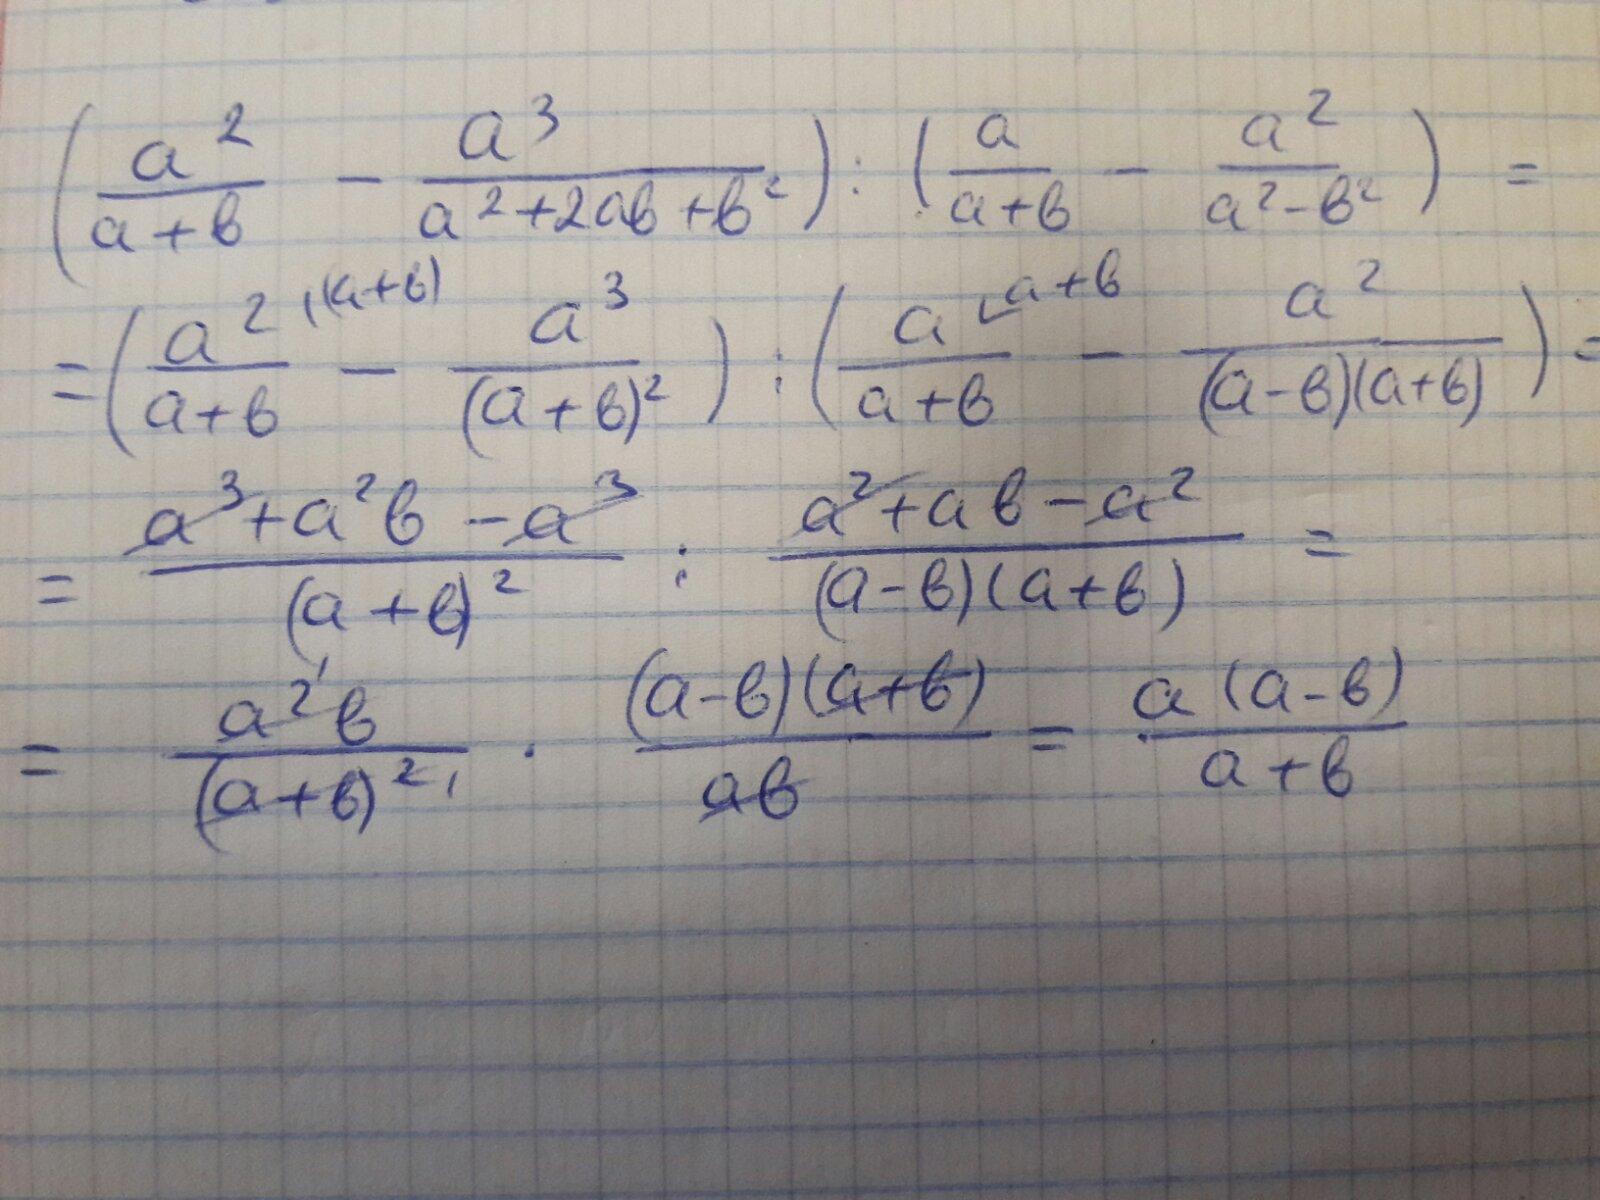 (a²/(a+b) − a³/(a²+2ab+b²)) : (a/(a+b) − a²/(a²−b²)) =
= (a²^(a+b)/(a+b) − a³/(a+b)²) : (a^a+b/(a+b) − a²/((a−b)(a+b))) =
= (a³+a²b−a³)/(a+b)² : (a²+ab−a²)/((a−b)(a+b)) =
= a²b/(a+b)² · (a−b)(a+b)/ab = a(a−b)/(a+b)